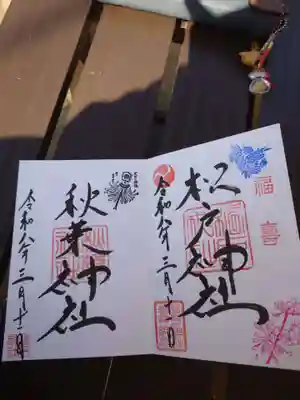 福喜
松戸神社
令和六年三月十一日
秋葉神社
令和六年三月十一日